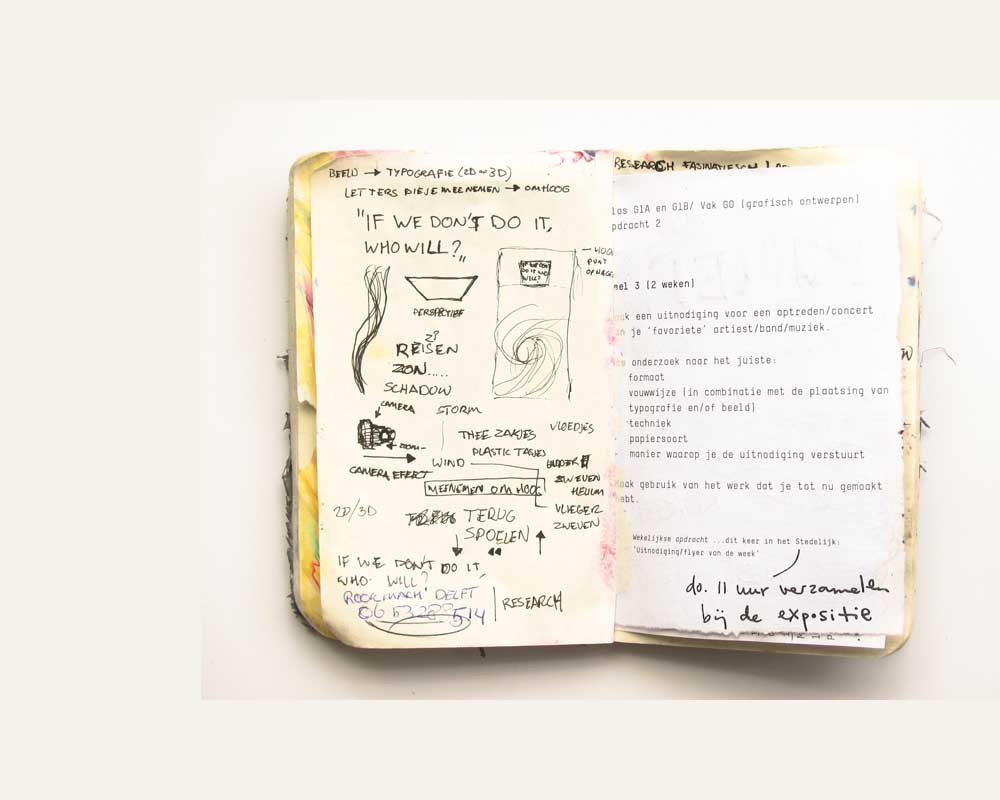 BEELD → TYPOGRAFIE (2D ~ 3D)
LETTERS DIE JE MEENEMEN → OMHOOG
"IF WE DON'T DO IT,
WHO WILL?"
IF WE DON'T
DO IT WHO
WILL?
PUNT
PERSPECTIEF
REISEN
ZON.....
SCHADOW
CAMERA
STORM
ZOOM
THEE ZAKJES
VLOEDJES
PLASTIC TASJES
WIND
CAMERA EFFECT
ZWEVEN
HELIUM
MEENEMEN OMHOOG
VLIEGER
ZWEVEN
2D/3D
TERUG
SPOELEN
IF WE DON'T DO IT,
WHO WILL?
ROOKMACH DELFT
RESEARCH
RESEARCH FASINATIESCH
las G1A en G1B/ Vak GO [grafisch ontwerpen]
pdracht 2
eel 3 [2 weken]
ak een uitnodiging voor een optreden/concert
n je 'favoriete' artiest/band/muziek.
onderzoek naar het juiste:
formaat
vouwwijze [in combinatie met de plaatsing van
typografie en/of beeld]
techniek
papiersoort
manier waarop je de uitnodiging verstuurt
aak gebruik van het werk dat je tot nu gemaakt
ebt.
Wekelijkse opdracht ...dit keer in het Stedelijk:
'Uitnodiging/flyer van de week'
do. 11 uur verzamelen
bij de expositie